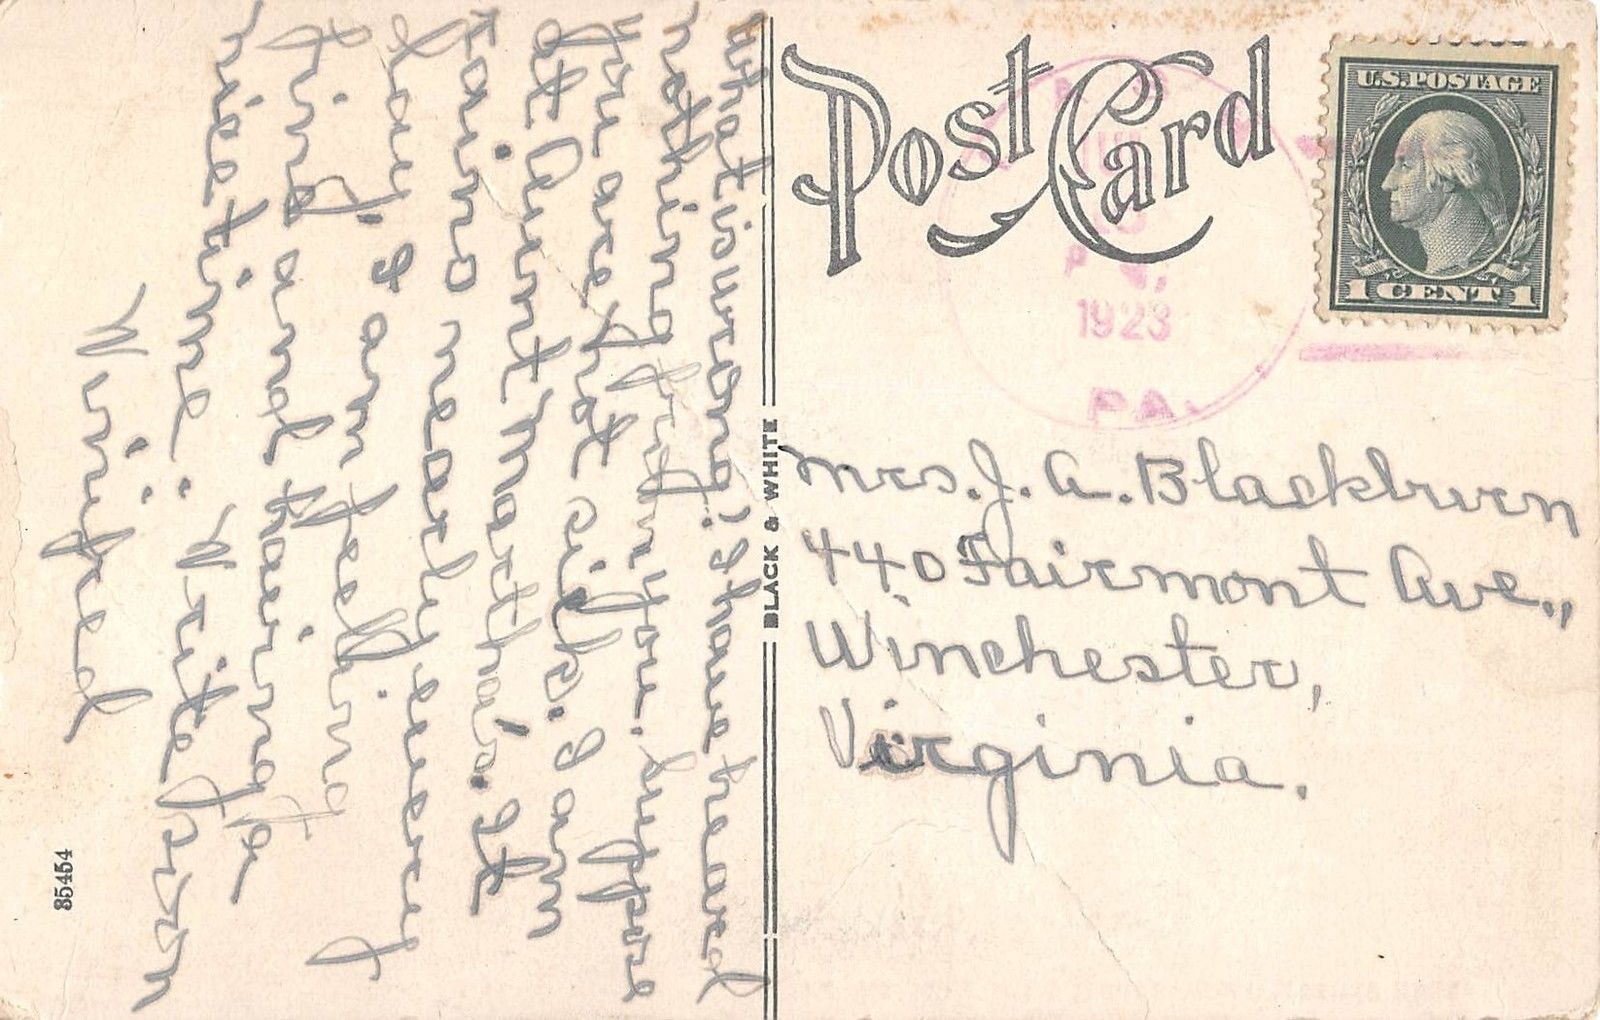 What is wrong? I have heard
nothing from you. suppose
you are not sick. I am
at Aunt Martha's. It
rains nearly every
day. I am feeling
fine and having a
nice time. Write soon
Winifred
Post Card
U.S. POSTAGE
1 CENT 1
P M.
1923
PA.
BLACK & WHITE
Mrs. J. A. Blackburn
440 Fairmont Ave.,
Winchester,
Virginia.
85454